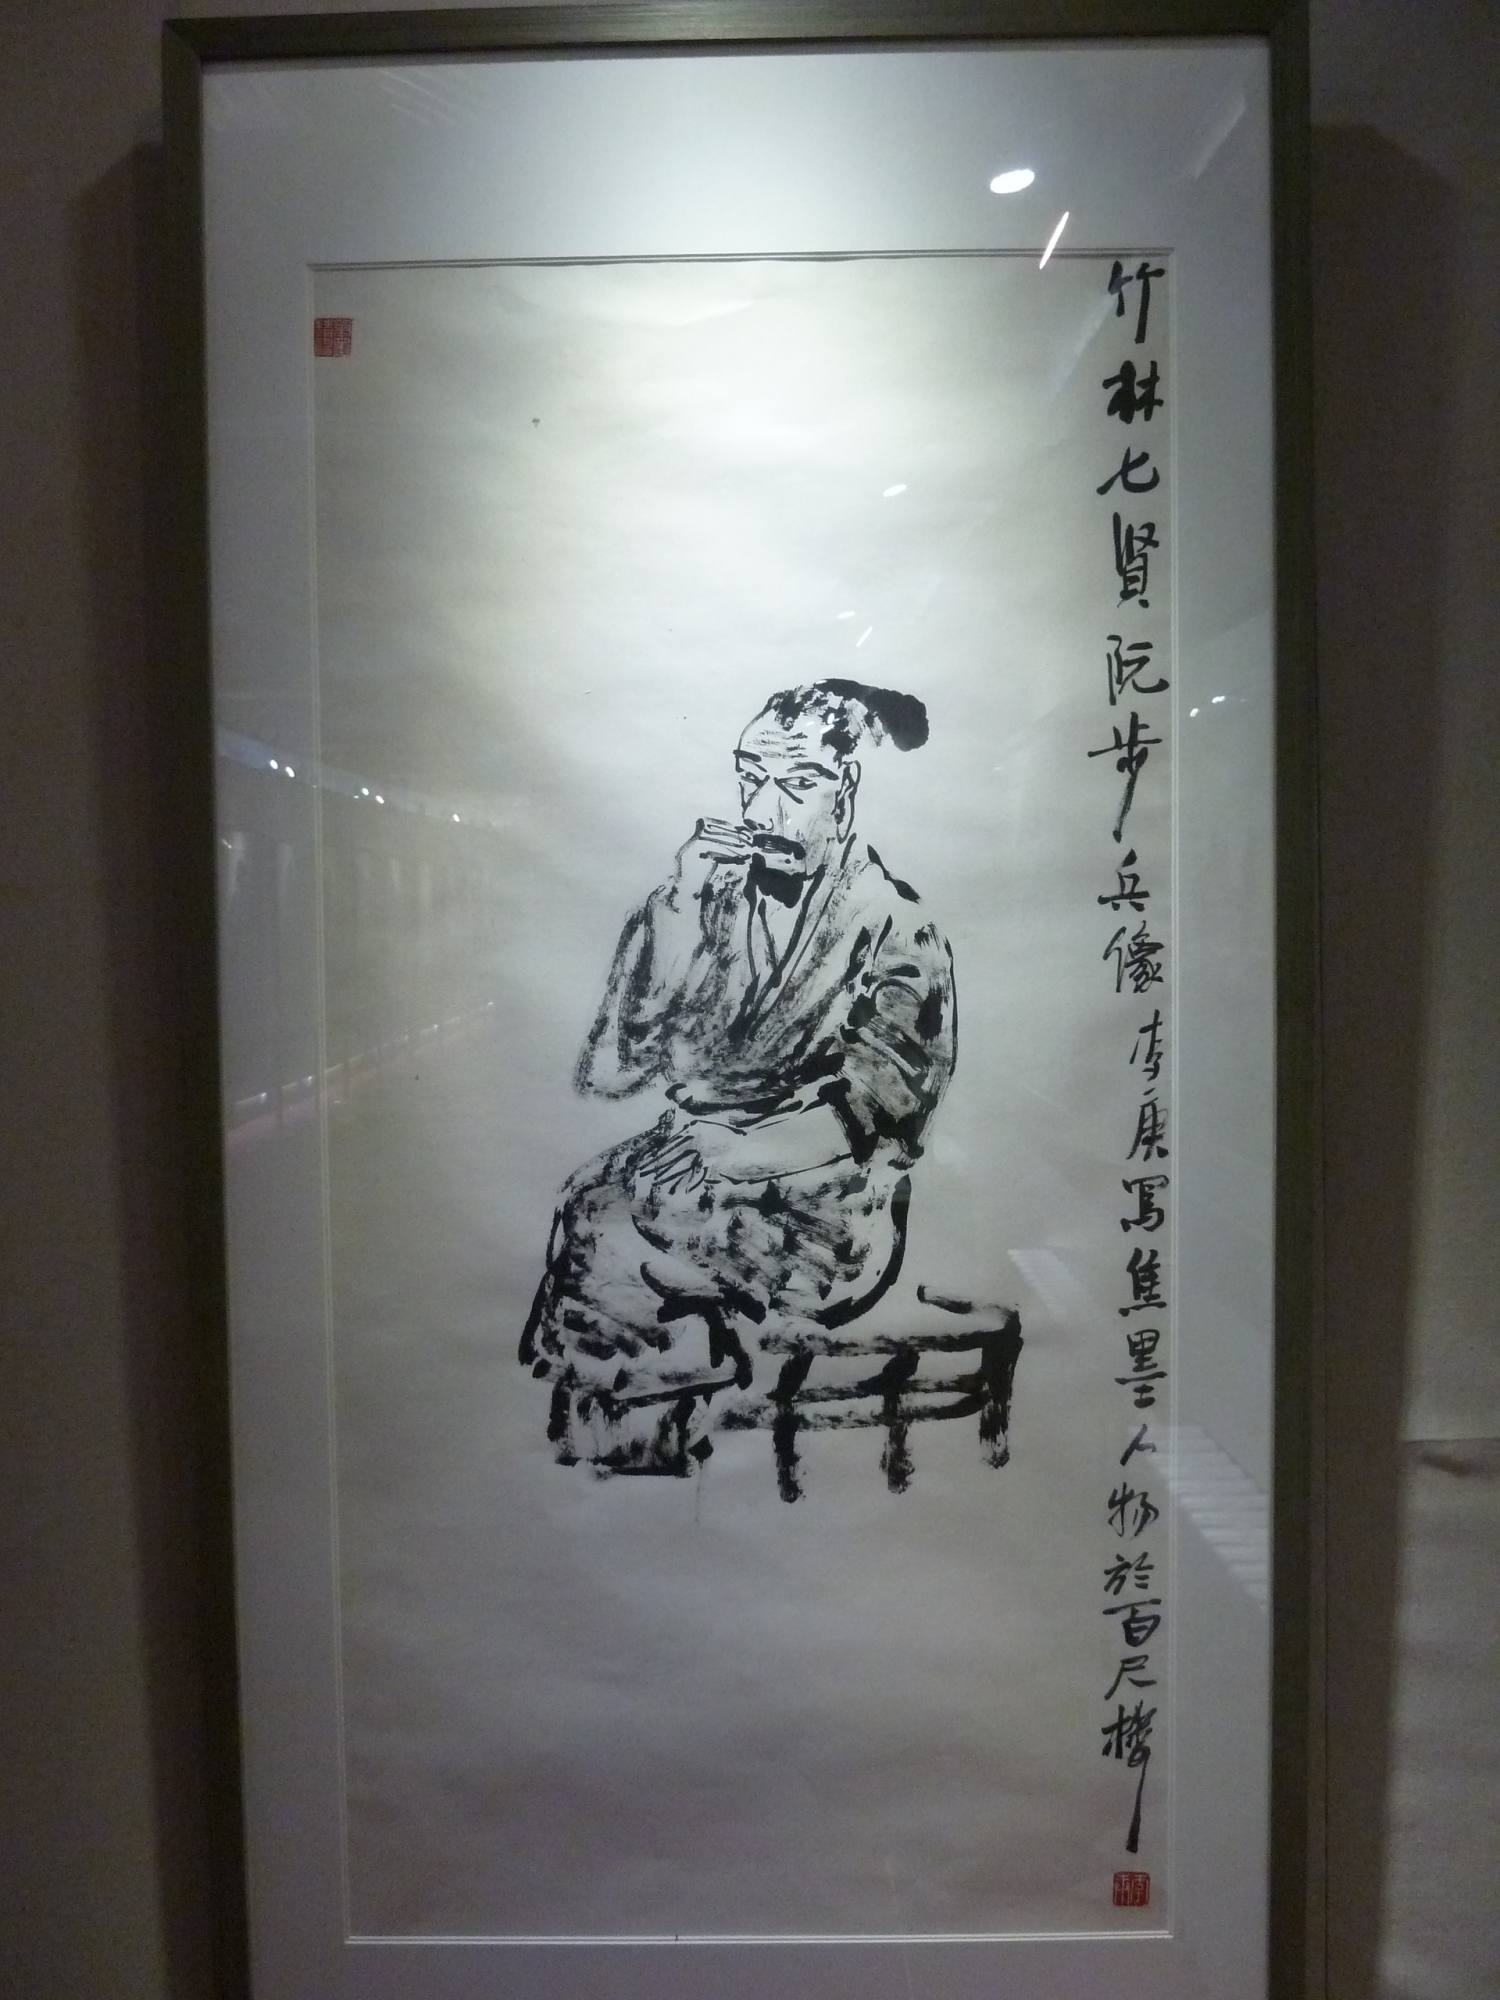 竹林七賢阮步兵像李庚寫焦墨人物於百尺樓